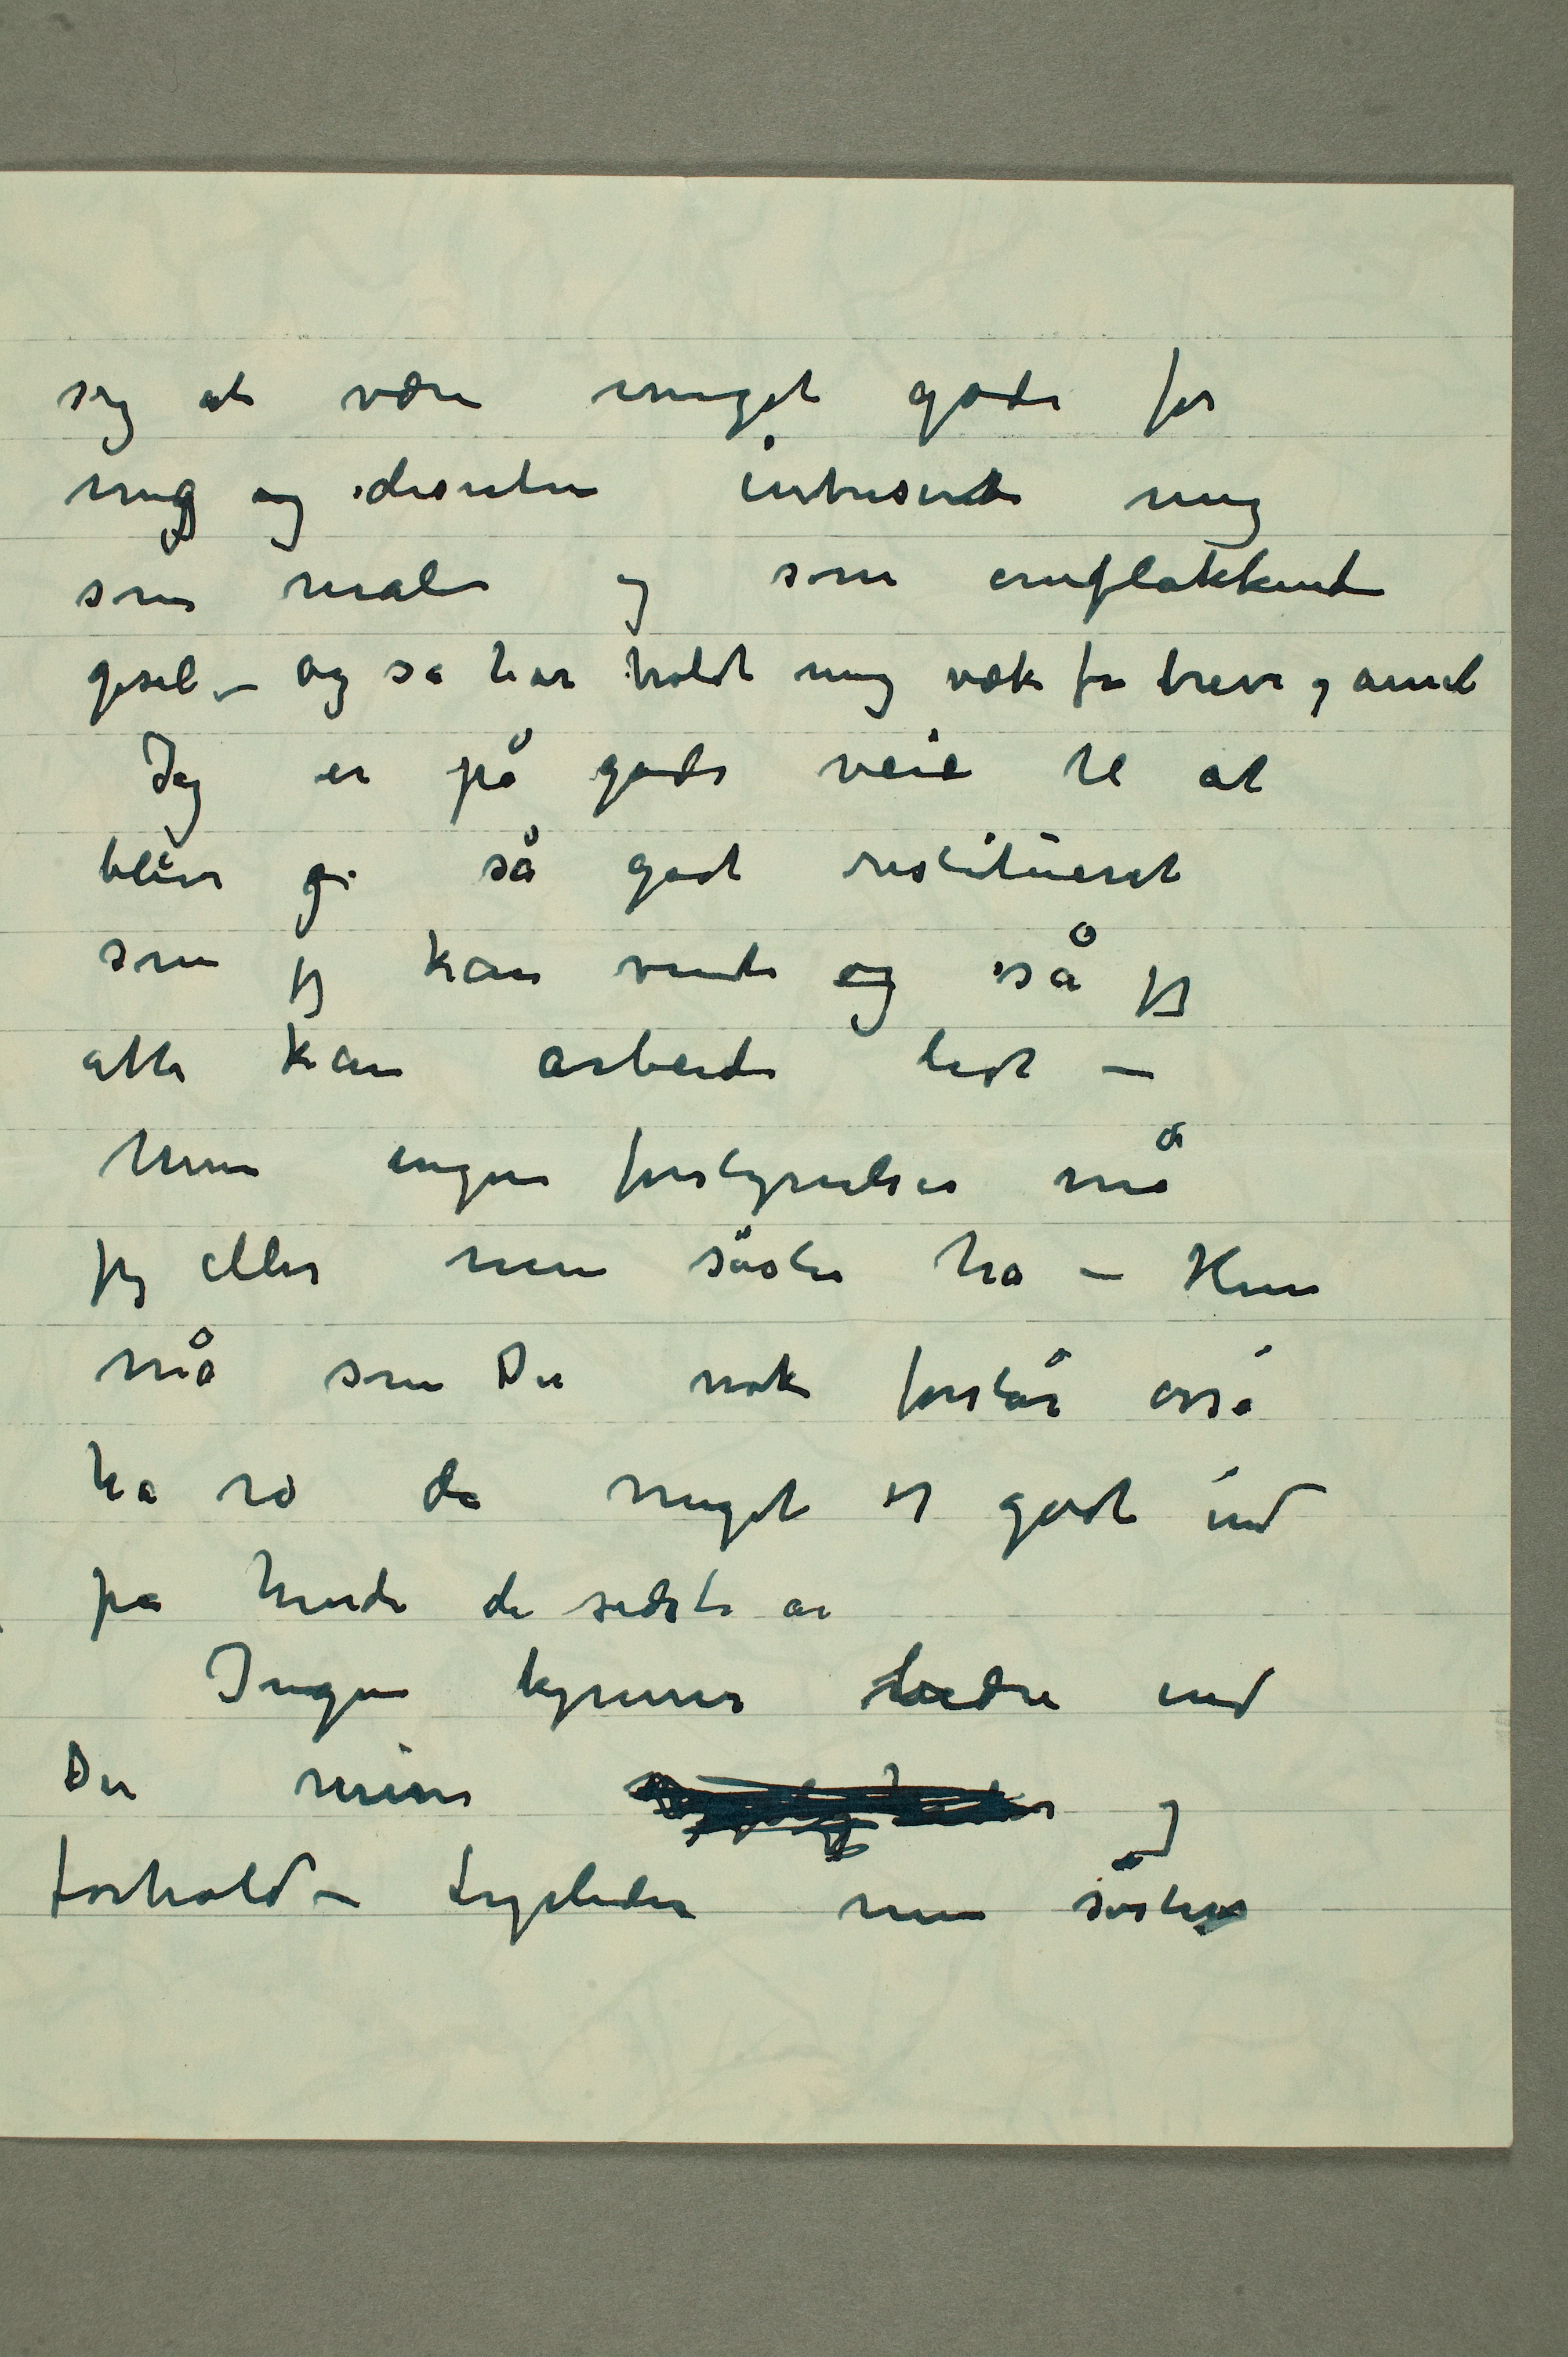 sig at være meget godt for
mig og desuten intreseret mig
som maler og som omflakkende
gesel – og så har holdt mig væk fra breve og annet
Jeg er på gode veie til at
blive gj så godt restitueret
som jeg kan vente og så jeg
atter kan arbeide lidt –
Men ingen forstyrrelser må
jeg eller min søster ha – Hun
må som Du nok forstår også
ha ro da meget er godt ind
på hende de sidste år
Ingen kjenner bedre end
Du mine og
forhold – ligeledes min søsters